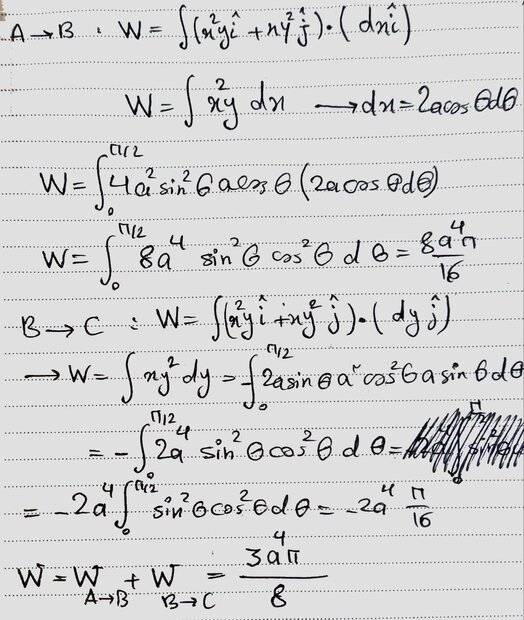 A → B : W = ∫(x²yî + xy²ĵ)·(dxî)
W = ∫ x²y dx → dx = 2a cos θ dθ
W = ∫₀^{π/2} 4a² sin²θ a cos θ (2a cos θ dθ)
W = ∫₀^{π/2} 8a⁴ sin²θ cos²θ dθ = 8a⁴π/16
B → C : W = ∫(x²yî + xy²ĵ)·(dyĵ)
→ W = ∫ xy² dy = -∫₀^{π/2} 2a sin θ a² cos²θ a sin θ dθ
= -∫₀^{π/2} 2a⁴ sin²θ cos²θ dθ =
= -2a⁴ ∫₀^{π/2} sin²θ cos²θ dθ = -2a⁴ π/16
W = W_{A→B} + W_{B→C} = 3a⁴π/8